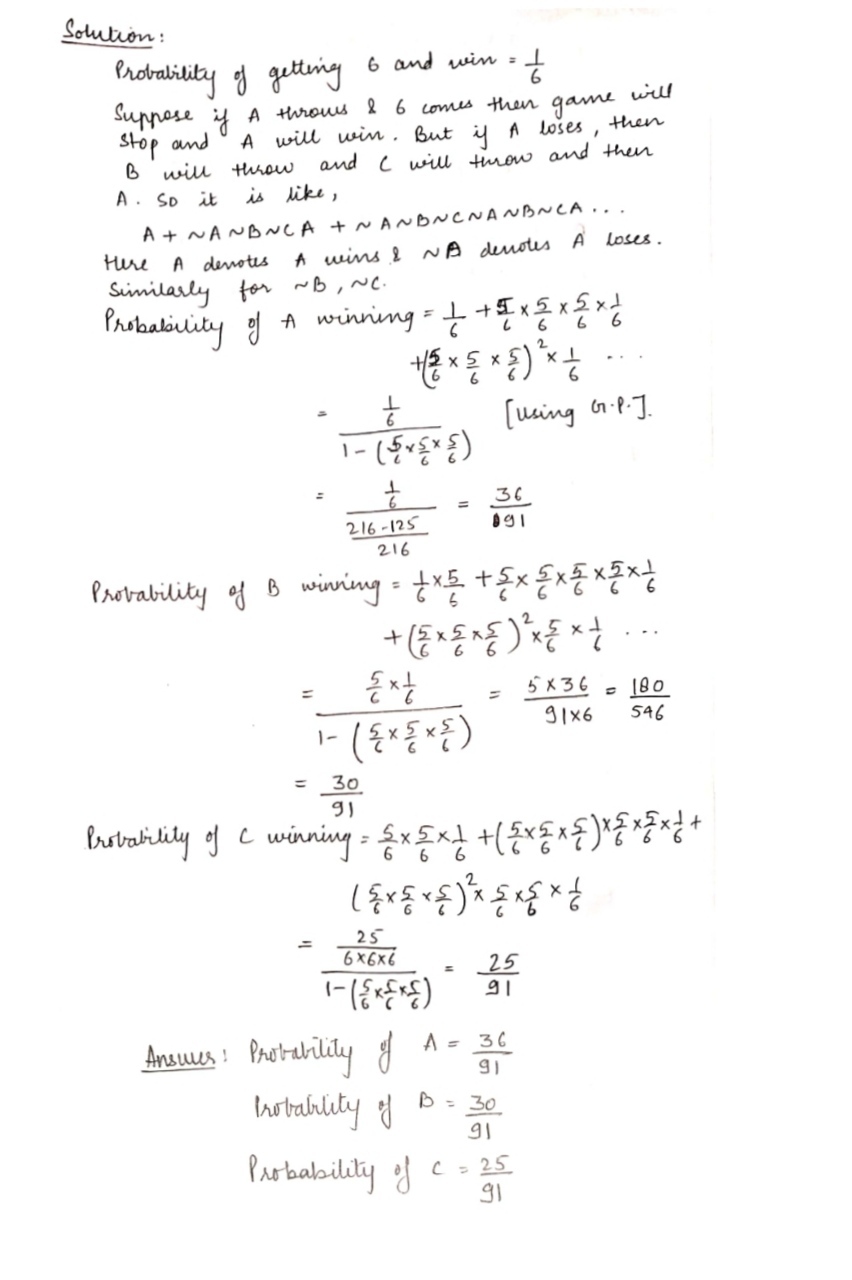 Solution:
Probability of getting 6 and win = 1/6
Suppose if A throws & 6 comes then game will
stop and A will win. But if A loses, then
B will throw and C will throw and then
A. So it is like,
A + ~A~B~CA + ~A~B~C~A~B~CA...
Here A denotes A wins & ~A denotes A loses.
Similarly for ~B, ~C.
Probability of A winning = 1/6 + 5/6 × 5/6 × 5/6 × 1/6
+ (5/6 × 5/6 × 5/6)² × 1/6 ....
= (1/6) / (1 - (5/6 × 5/6 × 5/6)) [Using G.P.].
= (1/6) / ((216 - 125)/216) = 36/91
Probability of B winning = 1/6 × 5/6 + 5/6 × 5/6 × 5/6 × 5/6 × 1/6
+ (5/6 × 5/6 × 5/6)² × 5/6 × 1/6 ...
= (5/6 × 1/6) / (1 - (5/6 × 5/6 × 5/6)) = (5 × 36)/(91 × 6) = 180/546
= 30/91
Probability of C winning = 5/6 × 5/6 × 1/6 + (5/6 × 5/6 × 5/6) × 5/6 × 5/6 × 1/6 +
(5/6 × 5/6 × 5/6)² × 5/6 × 5/6 × 1/6
= (25/(6×6×6)) / (1 - (5/6 × 5/6 × 5/6)) = 25/91
Answer: Probability of A = 36/91
Probability of B = 30/91
Probability of C = 25/91